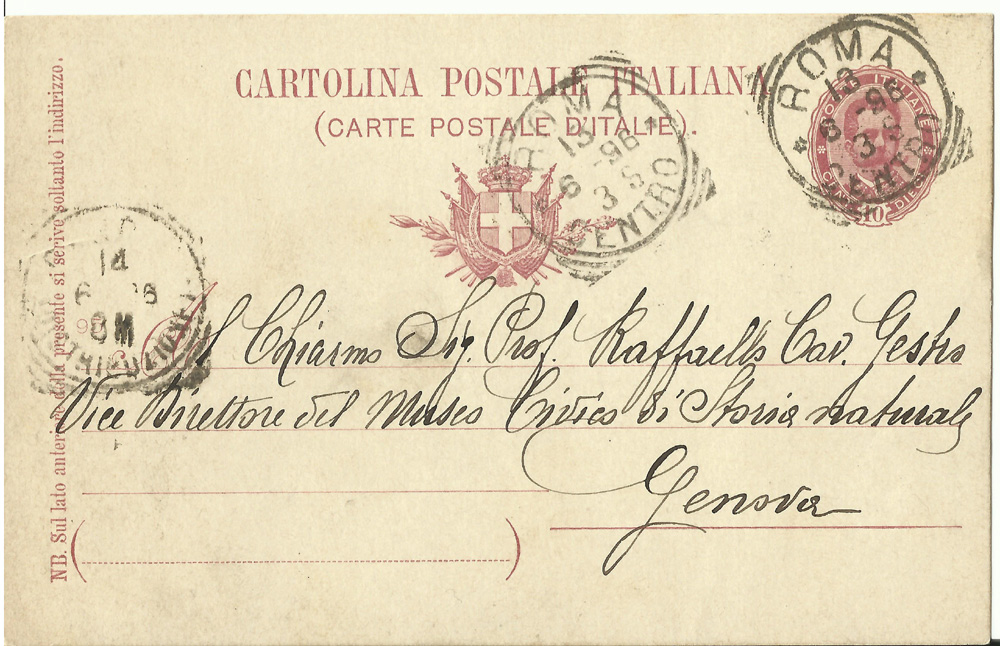 CARTOLINA POSTALE ITALIANA
(CARTE POSTALE D'ITALIE).
ROMA
13
6 - 96
3 S
CENTRO
ROMA
13
6 - 96
3 S
CENTRO
ITALIANE
DIECI
10
14
8 M
DISTRIBUZIONE
Al Chiarmo Sig. Prof. Raffaello Cav. Gestro
Vice Direttore del Museo Civico di Storia naturale
Genova
NB. Sul lato anteriore della presente si scrive soltanto l'indirizzo.